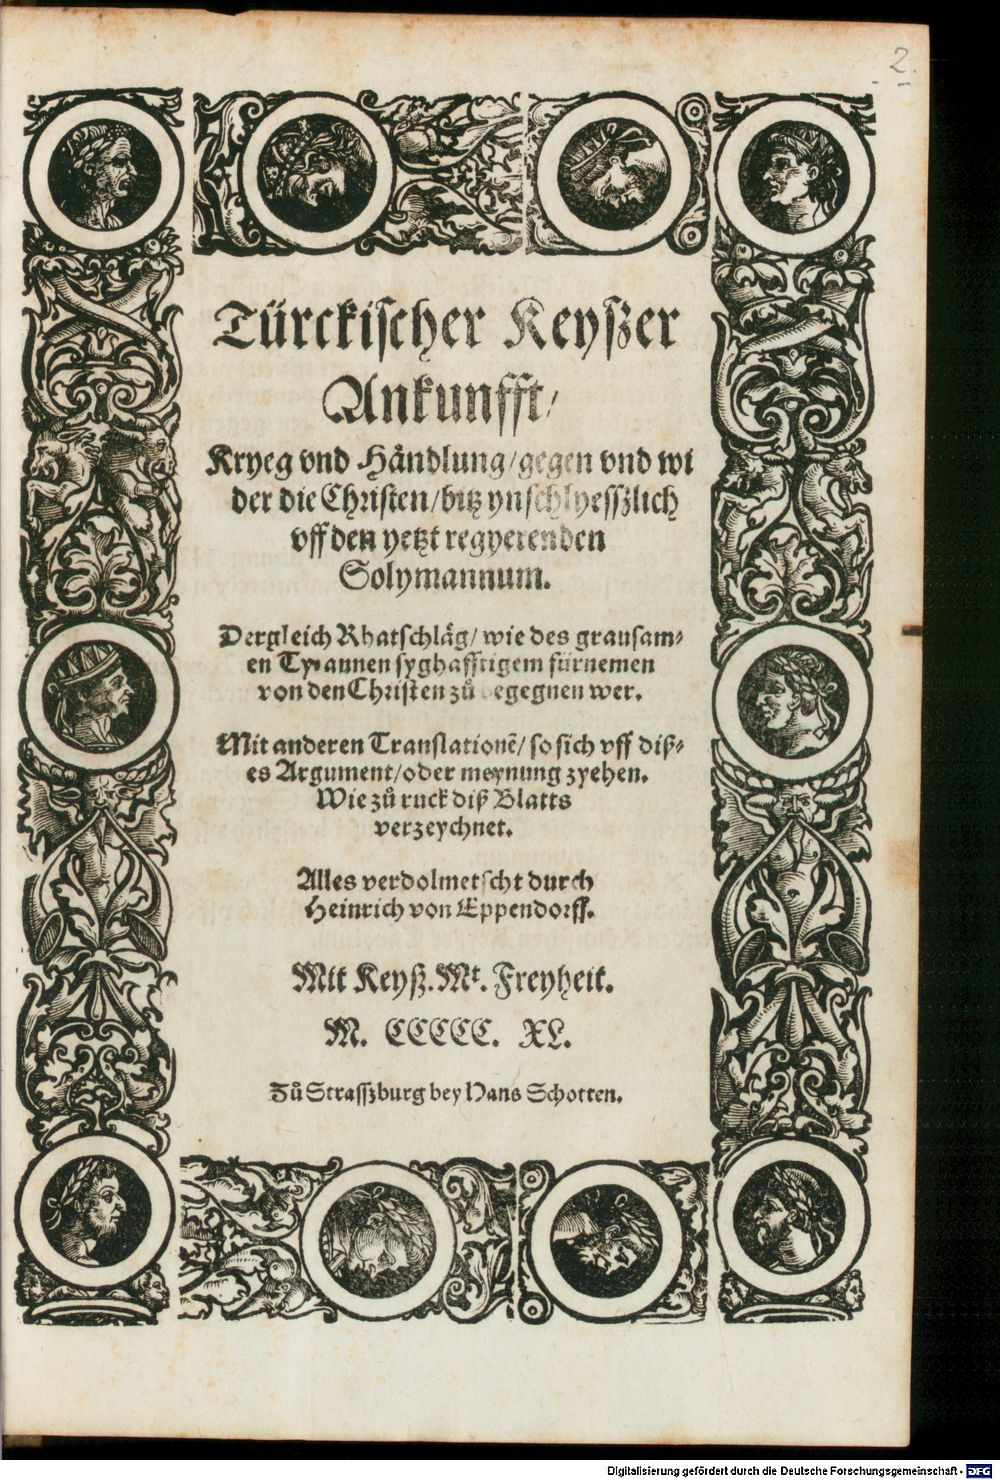 2.
Türckischer Keyßer
Ankunfft/
Kryeg vnd Håndlung/gegen vnd wi
der die Christen/bitz ynschlyesszlich
vff den yetzt regyerenden
Solymannum.
Dergleich Rhatschläg/ wie des grausam⸗
en Tyrannen syghafftigem fürnemen
von den Christen zů begegnen wer.
Mit anderen Translationẽ/ so sich vff diß⸗
es Argument/oder meynung zyehen.
Wie zů ruck diß Blatts
verzeychnet.
Alles verdolmetscht durch
Heinrich von Eppendorff.
Mit Keyß. Mt. Freyheit.
M. CCCCC. XL.
Zů Strasszburg bey Hans Schotten.
Digitalisierung gefördert durch die Deutsche Forschungsgemeinschaft - DFG